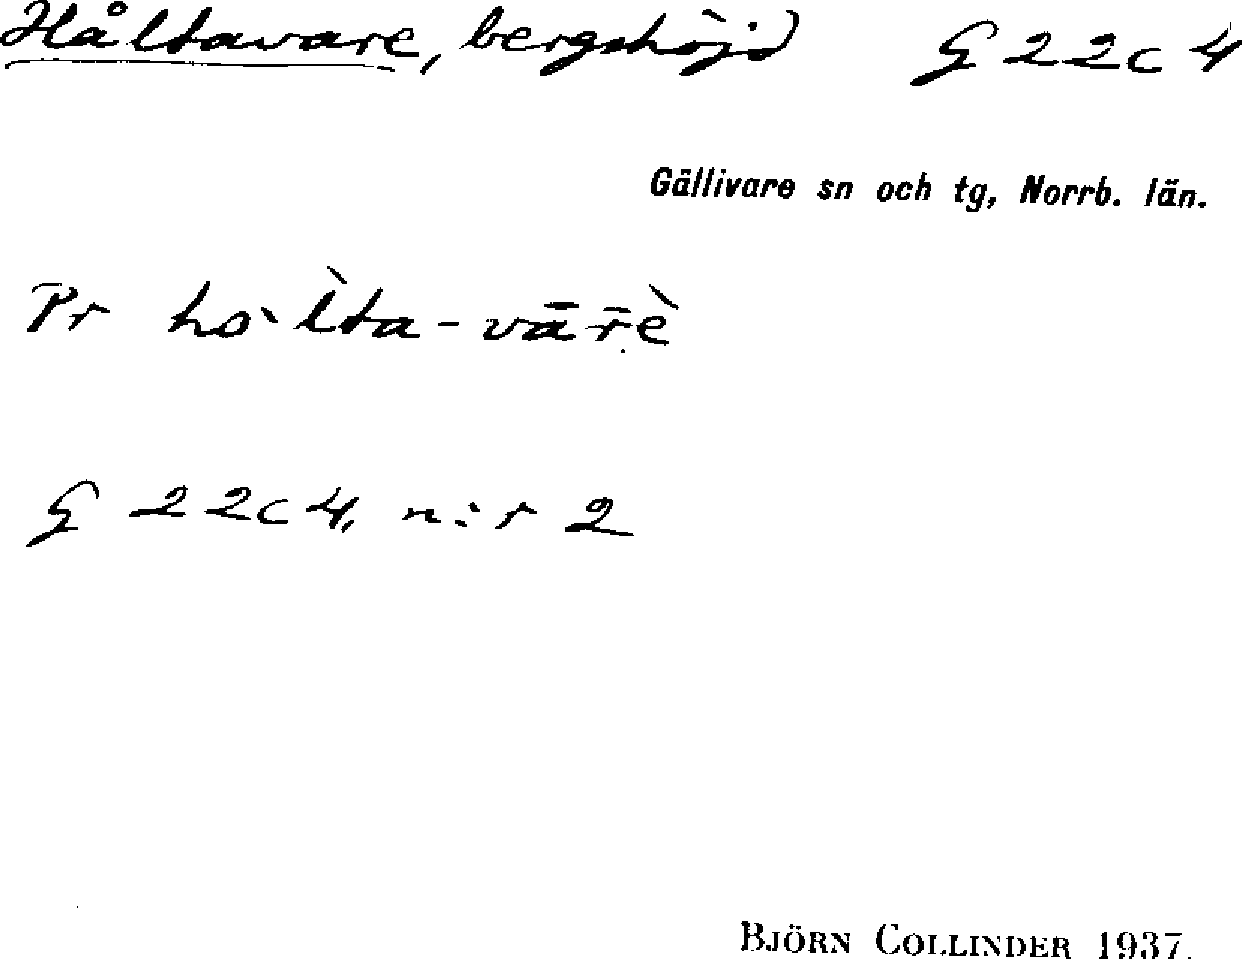 Håltavare, bergshöjd G 22c 4
Gällivare sn och tg, Norrb. län.
Pr ho`l̀ta-vār̄ẹ̀
G 22c4, n:r 2
BJÖRN COLLINDER 1937.